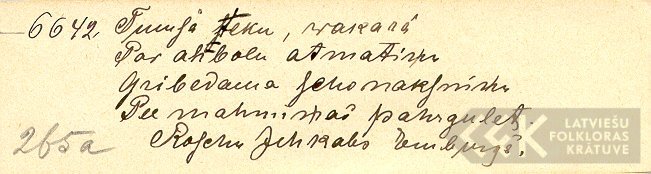 6642. Tumsā teku, wakarā
Par ahbolu atmatiņu
Gribedama scho naksniņu
Pee mahmiņas pahrgulet.
265a Roschu Jehkabs Emburgā.
LATVIEŠU
FOLKLORAS
KRĀTUVE